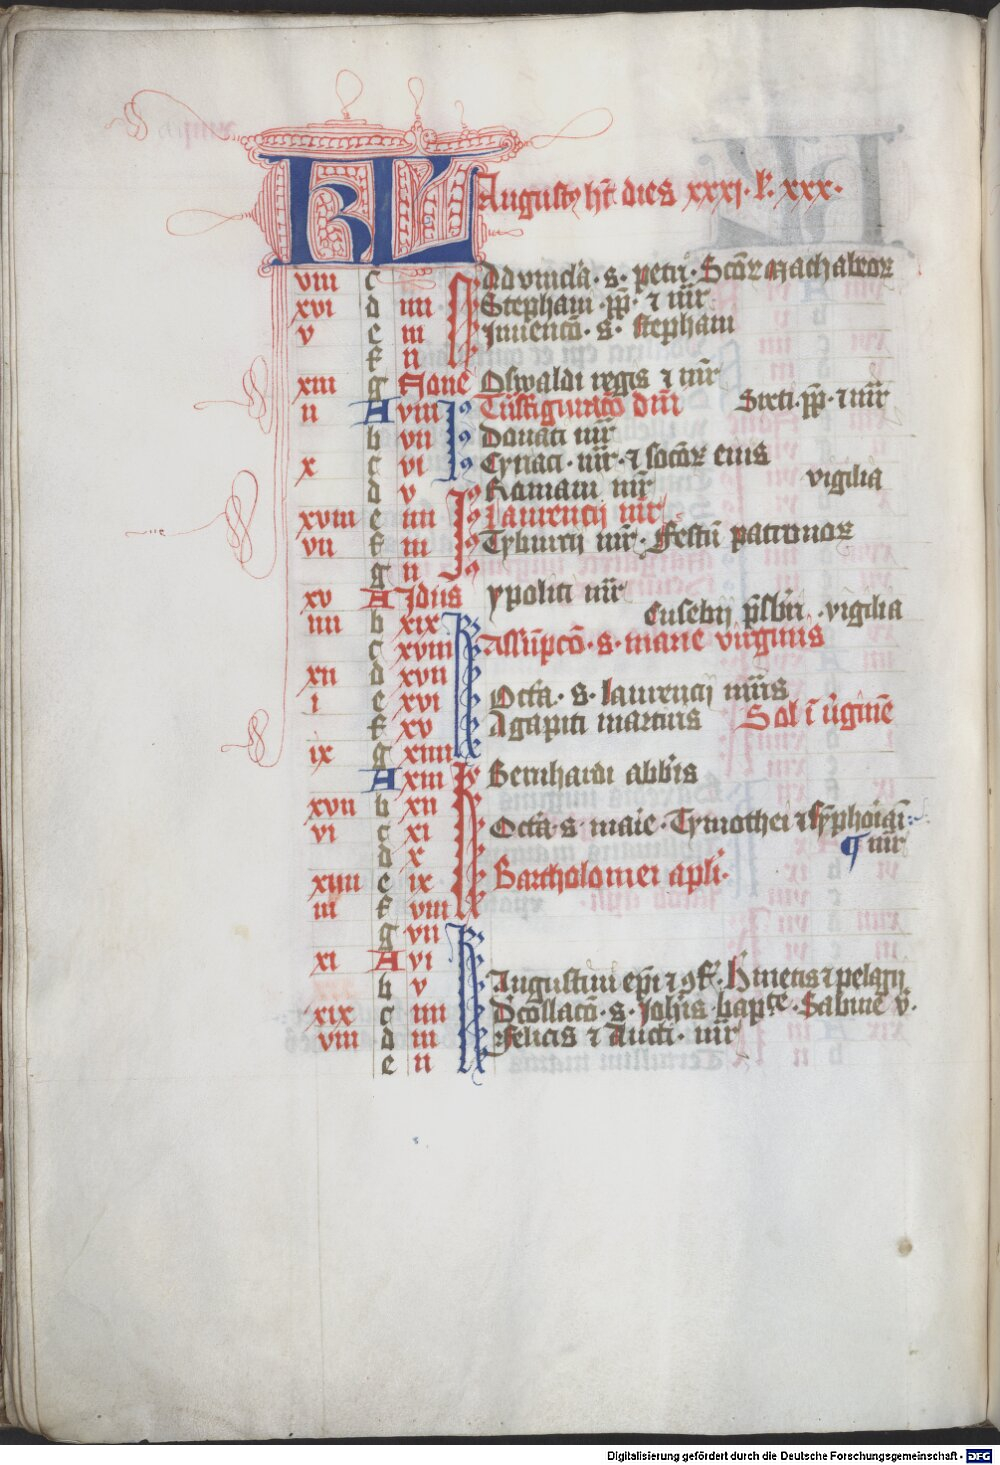 KL Augusty ht dies xxxj. l. xxx.
viii c Ad vincla. s. petri. Scor Machabeor
xvi d iiii Stephani pp. et mr
v e iii Inuencō. s. stephani
f ii
xiii g None Oswaldi regis et mr
ii A viii Idus Trāsfiguratō dni Sixti. pp. et mr
b vii Donati mr
x c vi Cyriaci. mr. et socior eius
d v Romani mr vigilia
xviii e iiii Laurencij mr
vii f iii Tyburcij mr. Festū patronor
g ii
xv A Idus ypoliti mr
iiii b xix Eusebij psbri. vigilia
c xviii Assūpcō. s. marie virginis
xii d xvii
i e xvi Octa. s. laurencij mris
f xv Agapiti martiris Sol ī v̄ginē
ix g xiiii
A xiii Bernhardi abbis
xvii b xii
vi c xi Octa s maie. Tymothei et syphoiani
d x mr
xiiii e ix Bartholomei apli.
iii f viii
g vii
xi A vi
b v Augustini epi et ꝯf. hmetis et pelagij
xix c iiii Dcollacō. s. Johis bapte. Sabine v.
viii d iii Felicis et Aucti. mr
e ii
Digitalisierung gefördert durch die Deutsche Forschungsgemeinschaft - DFG